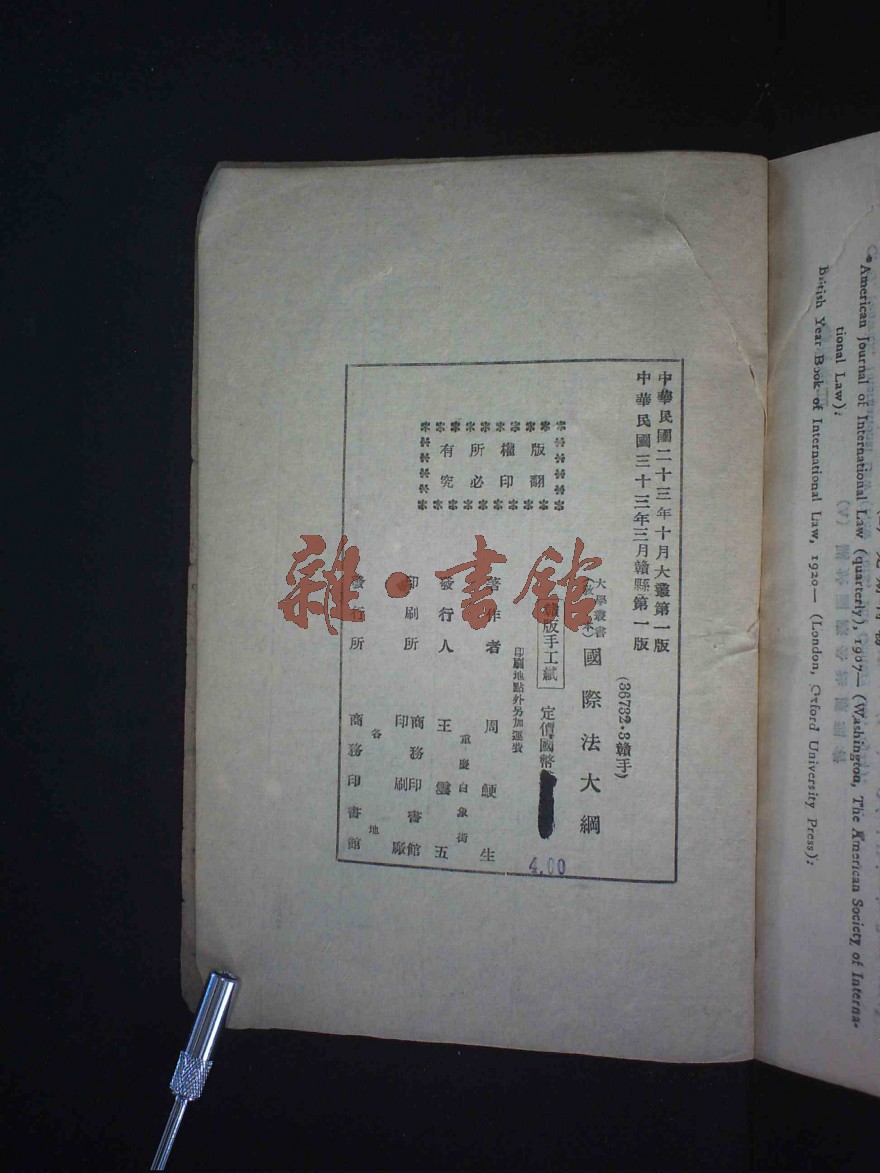 中華民國二十三年十月大叢第一版
中華民國三十三年三月贛縣第一版
(36732·3贛手)
大學叢書
國際法大綱
版手工紙
定價國幣
4.00
印刷地點外另加運費
著作者 周鯁生
重慶白象街
發行人 王雲五
印刷所 商務印書館
印刷廠
各地
發行所 商務印書館
版權所有
翻印必究
雜·書館
American Journal of International Law (quarterly), 1907— (Washington, The American Society of Interna-
tional Law):
British Year Book of International Law, 1920— (London, Oxford University Press):